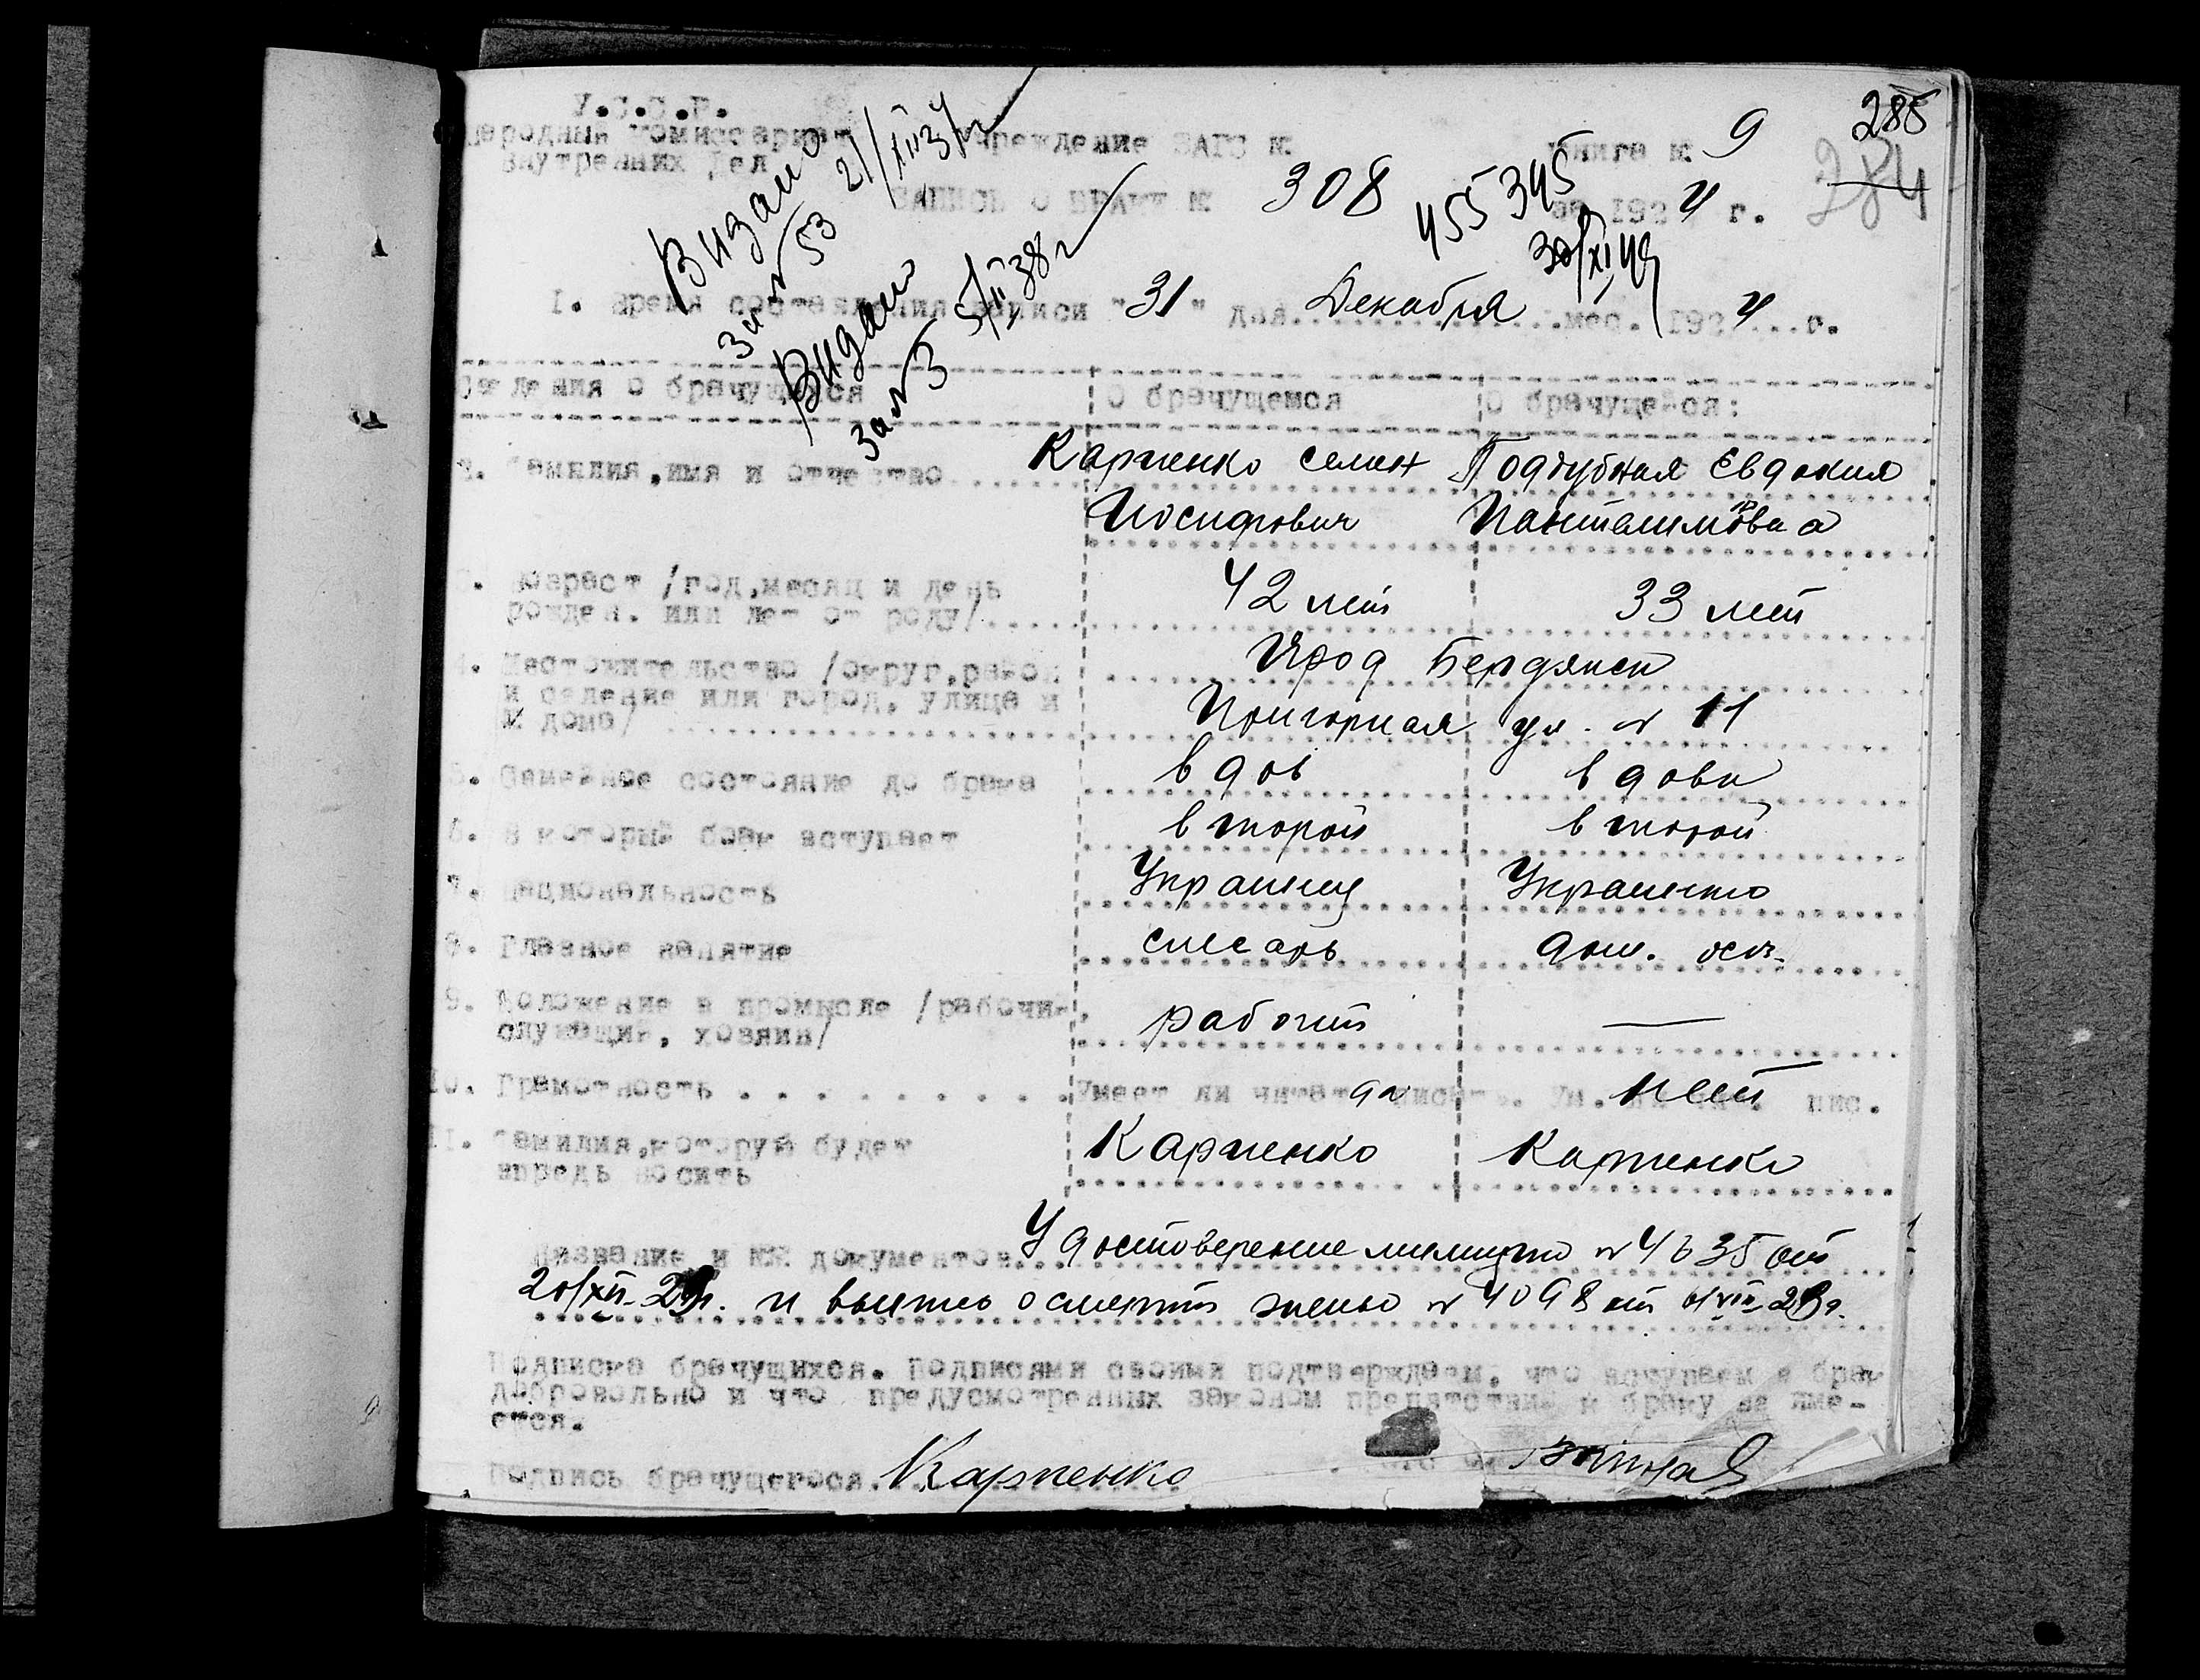 У.С.С.Р.
Народный Комиссариат
Внутренних Дел
Учреждение ЗАГС №
Книга № 9
285
284
ЗАПИСЬ О БРАКЕ № 308
за 1924 г.
455345
30/XI 49
Видано
За № 53 21/XII 34 г
Видано
За № 3 5/II 38 г
1. Время составления записи "31" дня Декабря мес. 1924 г.
Сведения о брачущихся
О брачущемся
О брачущейся:
2. Фамилия, имя и отчество
Карпенко Семен
Поддубная Евдокия
Иосифович
Панталимоновна
3. Возраст /год, месяц и день
рожден. или лет от роду/
42 лет
33 лет
4. Местожительство /округ, район
и селение или город, улица и
№ дома/
Город Бердянск
Пригорная ул. № 11
5. Семейное состояние до брака
вдов
вдова
6. В который брак вступает
второй
второй
7. Национальность
Украинец
Украинка
8. Главное занятие
слесарь
дом. хоз.
9. Положение в промысле /рабочий,
служащий, хозяин/
рабочий
—
10. Грамотность . . . . . . . . .
Умеет ли читать да писать. Ум. ли чит. нет пис.
11. Фамилия, которую будет
впредь носить
Карпенко
Карпенко
Название и №№ документов Удостоверение милиции № 4635 от
20/XII-24г. и выпись о смерти жены № 4098 от VIII-23г.
Подписка брачущихся. Подписями своими подтверждаем, что вступаем в брак
добровольно и что предусмотренных законом препятствий к браку не име-
ется.
Подпись брачущегося. Карпенко